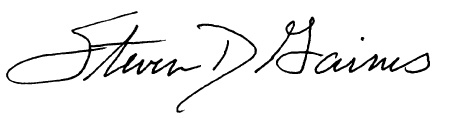 Steven D Gaines